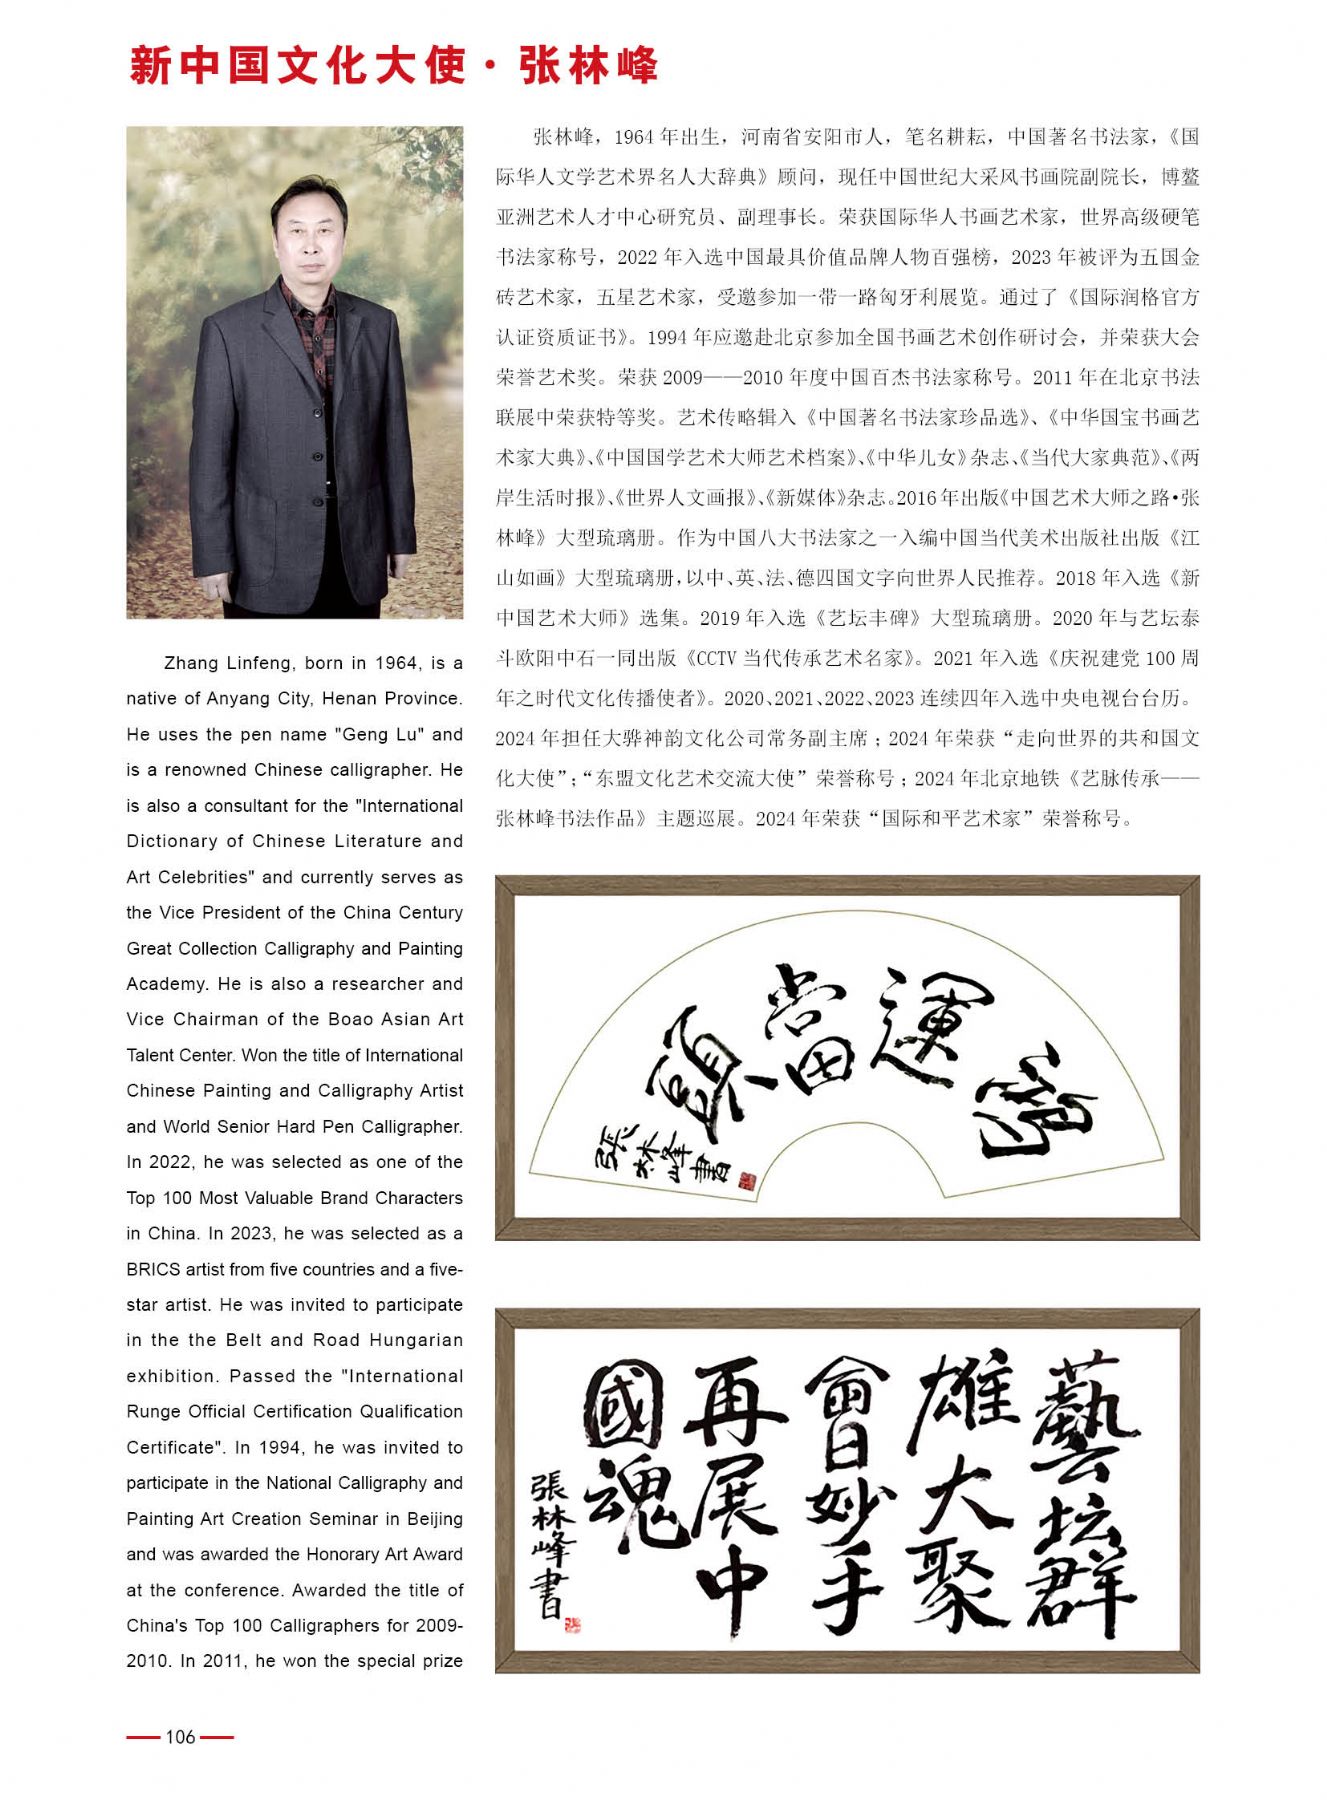 新中国文化大使·张林峰
张林峰，1964年出生，河南省安阳市人，笔名耕耘，中国著名书法家，《国
际华人文学艺术界名人大辞典》顾问，现任中国世纪大采风书画院副院长，博鳌
亚洲艺术人才中心研究员、副理事长。荣获国际华人书画艺术家，世界高级硬笔
书法家称号，2022年入选中国最具价值品牌人物百强榜，2023年被评为五国金
砖艺术家，五星艺术家，受邀参加一带一路匈牙利展览。通过了《国际润格官方
认证资质证书》。1994年应邀赴北京参加全国书画艺术创作研讨会，并荣获大会
荣誉艺术奖。荣获2009——2010年度中国百杰书法家称号。2011年在北京书法
联展中荣获特等奖。艺术传略辑入《中国著名书法家珍品选》、《中华国宝书画艺
术家大典》、《中国国学艺术大师艺术档案》、《中华儿女》杂志、《当代大家典范》、《两
岸生活时报》、《世界人文画报》、《新媒体》杂志。2016年出版《中国艺术大师之路•张
林峰》大型琉璃册。作为中国八大书法家之一入编中国当代美术出版社出版《江
山如画》大型琉璃册，以中、英、法、德四国文字向世界人民推荐。2018年入选《新
中国艺术大师》选集。2019年入选《艺坛丰碑》大型琉璃册。2020年与艺坛泰
斗欧阳中石一同出版《CCTV当代传承艺术名家》。2021年入选《庆祝建党100周
年之时代文化传播使者》。2020、2021、2022、2023连续四年入选中央电视台台历。
2024年担任大骅神韵文化公司常务副主席；2024年荣获“走向世界的共和国文
化大使”；“东盟文化艺术交流大使”荣誉称号；2024年北京地铁《艺脉传承——
张林峰书法作品》主题巡展。2024年荣获“国际和平艺术家”荣誉称号。
Zhang Linfeng, born in 1964, is a
native of Anyang City, Henan Province.
He uses the pen name "Geng Lu" and
is a renowned Chinese calligrapher. He
is also a consultant for the "International
Dictionary of Chinese Literature and
Art Celebrities" and currently serves as
the Vice President of the China Century
Great Collection Calligraphy and Painting
Academy. He is also a researcher and
Vice Chairman of the Boao Asian Art
Talent Center. Won the title of International
Chinese Painting and Calligraphy Artist
and World Senior Hard Pen Calligrapher.
In 2022, he was selected as one of the
Top 100 Most Valuable Brand Characters
in China. In 2023, he was selected as a
BRICS artist from five countries and a five-
star artist. He was invited to participate
in the the Belt and Road Hungarian
exhibition. Passed the "International
Runge Official Certification Qualification
Certificate". In 1994, he was invited to
participate in the National Calligraphy and
Painting Art Creation Seminar in Beijing
and was awarded the Honorary Art Award
at the conference. Awarded the title of
China's Top 100 Calligraphers for 2009-
2010. In 2011, he won the special prize
鴻運當頭
张林峰書
藝坛群
雄大聚
會日妙手
再展中
國魂
張林峰書
106